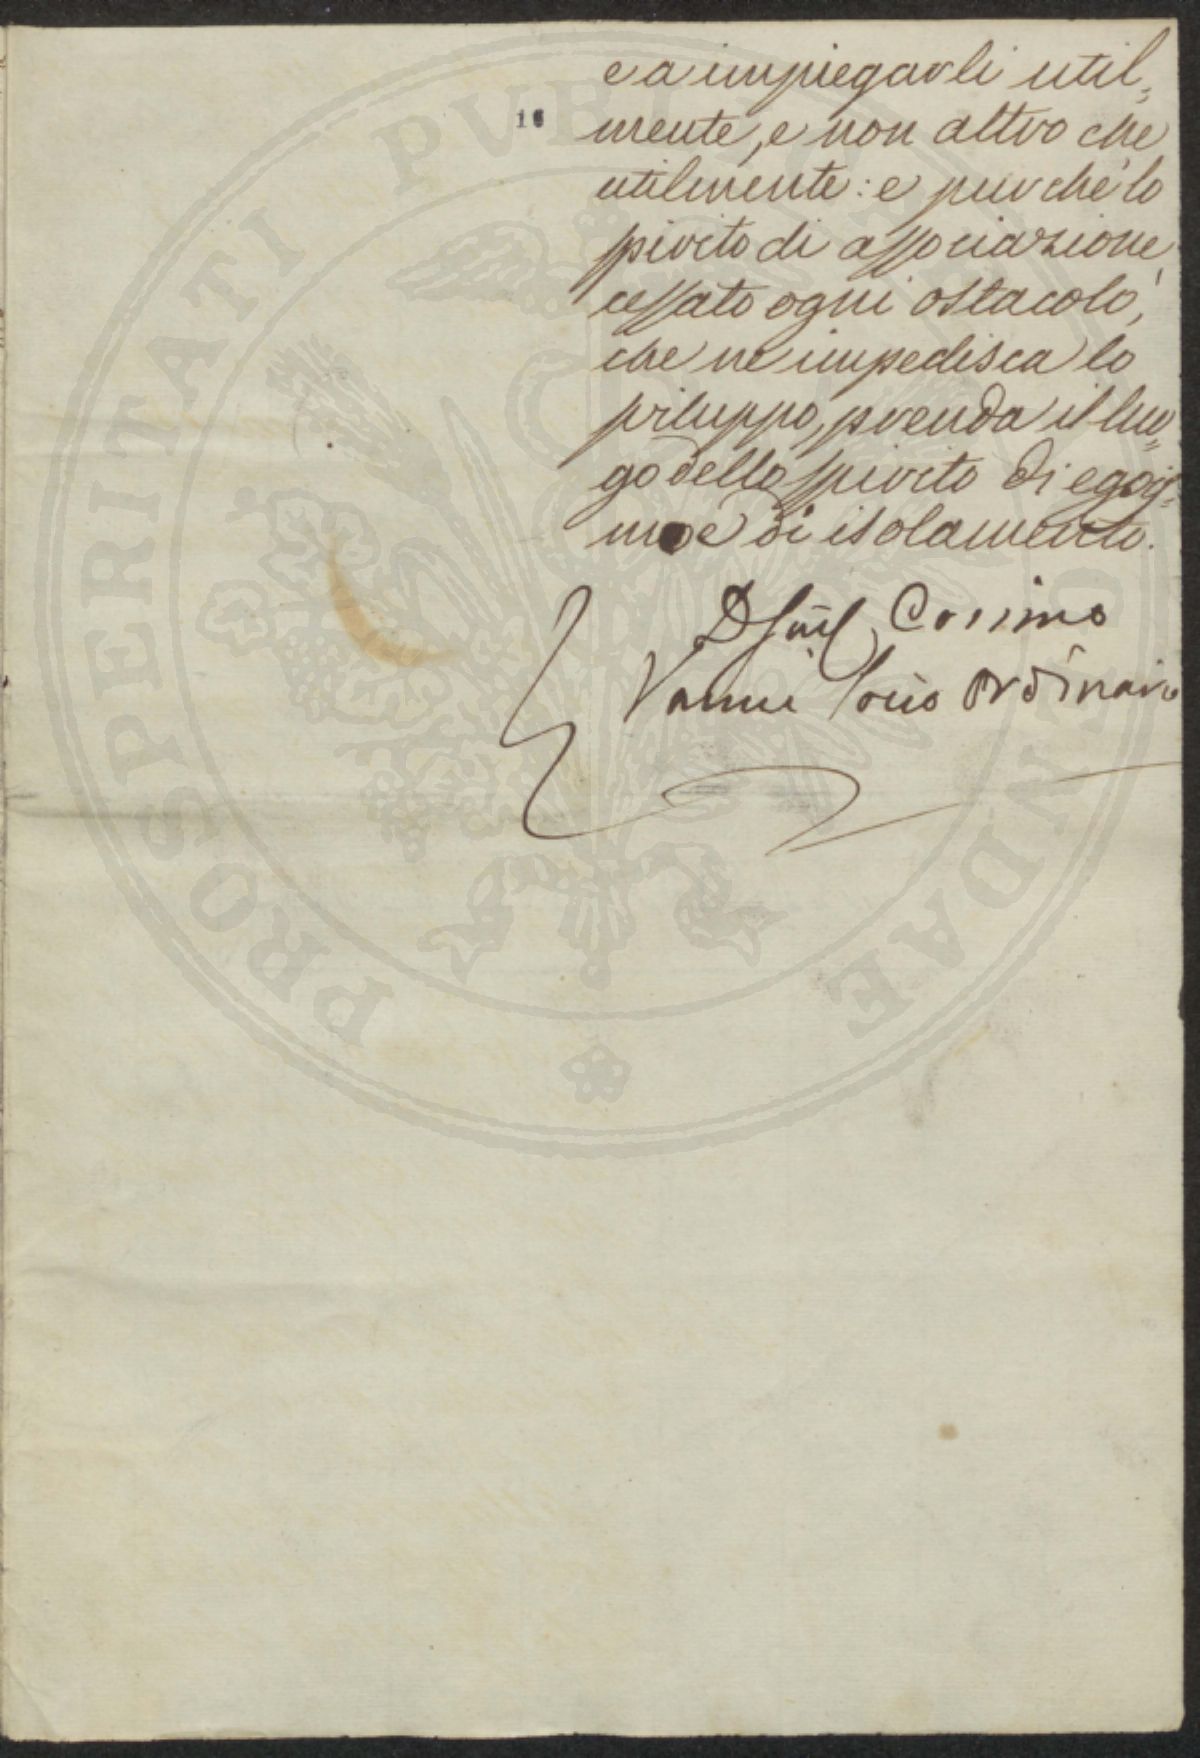 e a impiegarli util=
16
mente, e non altro che
utilmente: e purchè lo
spirito di associazione,
cessato ogni ostacolo,
che ne impedisca lo
sviluppo, prenda il luo=
go dello spirito di egois=
mo e di isolamento.
Cosimo
Vanni Socio Ordinario
PROSPERITATI PVBLICAE AVGENDAE